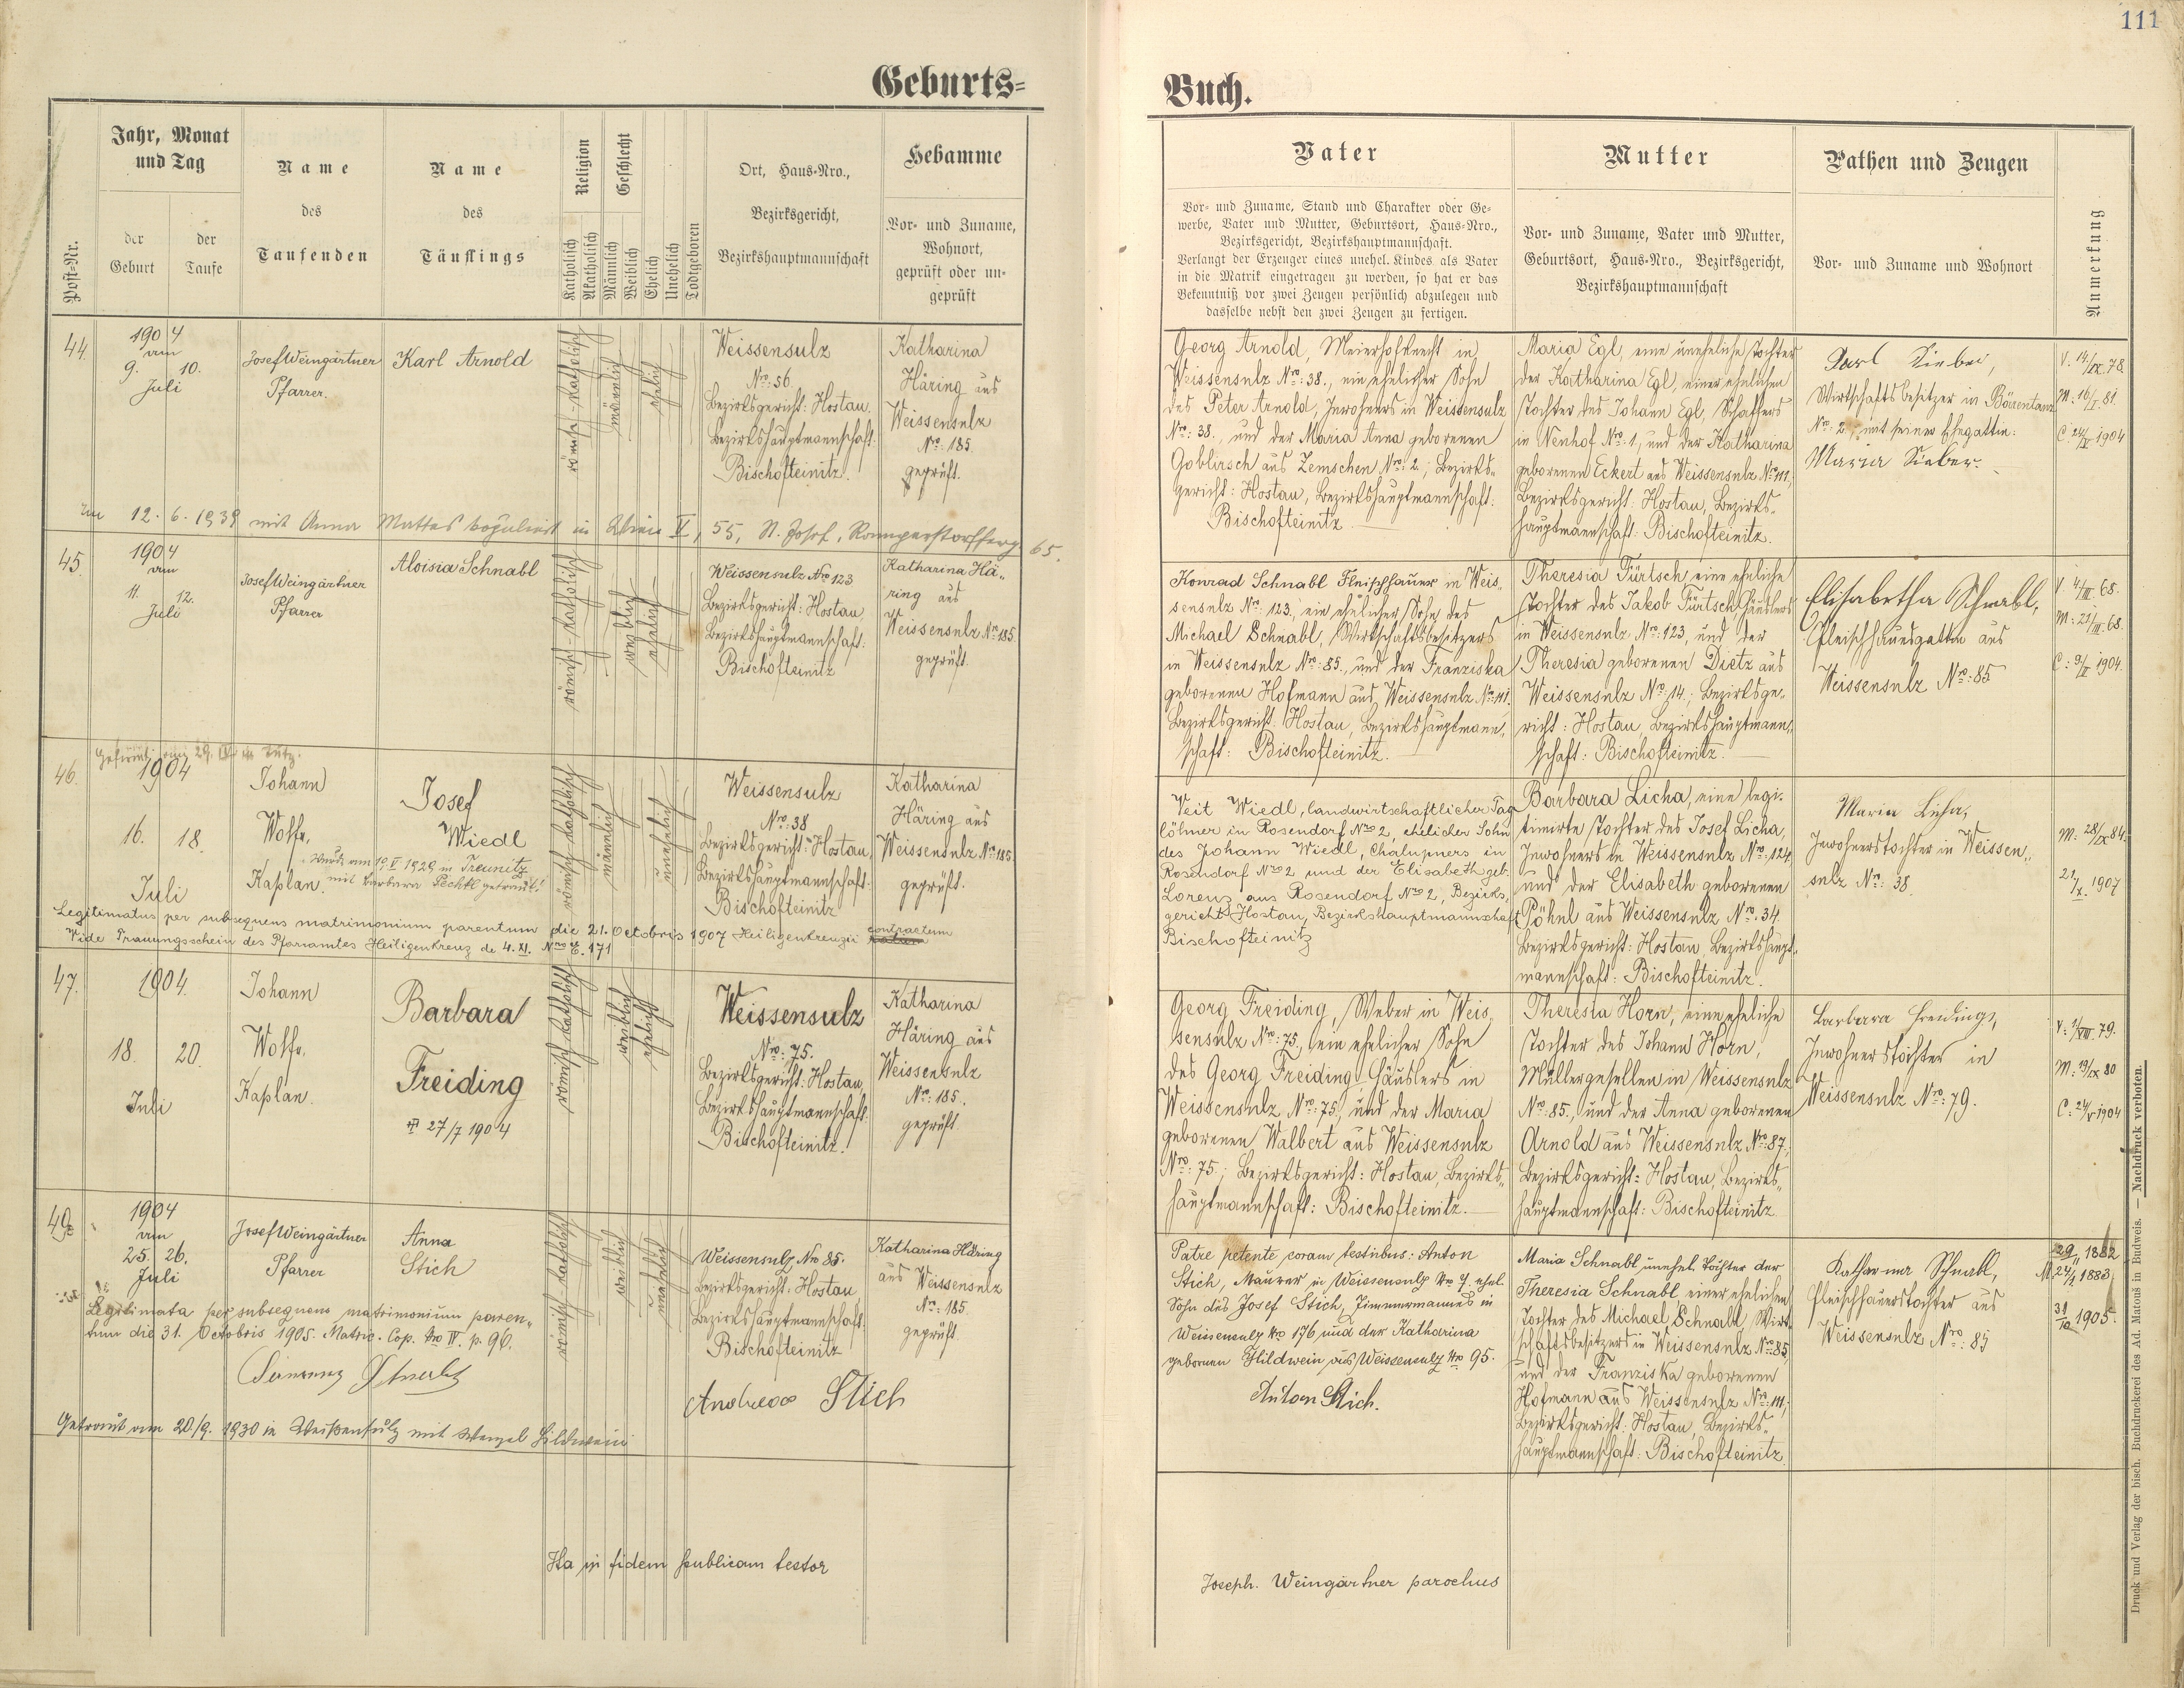 111
Geburts=
Buch.
Post-Nr.
Jahr, Monat
und Tag
der
Geburt
der
Taufe
Name
des
Taufenden
Name
des
Täuflings
Religion
Katholisch
Akatholisch
Geschlecht
Männlich
Weiblich
Ehelich
Unehelich
Todtgeboren
Ort, Haus-Nro.,
Bezirksgericht,
Bezirkshauptmannschaft
Hebamme
Vor- und Zuname,
Wohnort,
geprüft oder un-
geprüft
Vater
Vor- und Zuname, Stand und Charakter oder Ge-
werbe, Vater und Mutter, Geburtsort, Haus-Nro.,
Bezirksgericht, Bezirkshauptmannschaft.
Verlangt der Erzeuger eines unehel. Kindes als Vater
in die Matrik eingetragen zu werden, so hat er das
Bekenntniß vor zwei Zeugen persönlich abzulegen und
dasselbe nebst den zwei Zeugen zu fertigen.
Mutter
Vor- und Zuname, Vater und Mutter,
Geburtsort, Haus-Nro., Bezirksgericht,
Bezirkshauptmannschaft
Pathen und Zeugen
Vor- und Zuname und Wohnort
Anmerkung
44.
1904
am
9. 10.
Juli
Josef Weingärtner
Pfarrer.
Karl Arnold
römisch-katholisch
männlich
ehelich
Weissensulz
Nro: 56.
Bezirksgericht: Hostau,
Bezirkshauptmannschaft:
Bischofteinitz.
Katharina
Häring aus
Weissensulz
Nro: 185.
geprüft.
Georg Arnold, Meierhofknecht in
Weissensulz Nro: 38., ein ehelicher Sohn
des Peter Arnold, Inwohners in Weissensulz
Nro: 38., und der Maria Anna geborenen
Goblirsch aus Zemschen Nro: 2.; Bezirks-
gericht: Hostau, Bezirkshauptmannschaft:
Bischofteinitz.
Maria Egl, eine uneheliche Tochter
der Katharina Egl, einer ehelichen
Tochter des Johann Egl, Schaffers
in Neuhof Nro: 1., und der Katharina
geborenen Eckert aus Weissensulz Nro: 111.;
Bezirksgericht: Hostau, Bezirks-
hauptmannschaft: Bischofteinitz.
Karl Sieber,
Wirtschaftsbesitzer in Bärentanz
Nro: 2., mit seiner Ehegattin:
Maria Sieber.
V. 14/IX. 78.
M: 16/I. 81.
1904
12. 6. 1939 mit Anna Mattes kopuliert in Wien V, 55, St. Josef, 65.
45.
1904
am
11. 12.
Juli
Josef Weingärtner
Pfarrer
Aloisia Schnabl
römisch-katholisch
weiblich
ehelich
Weissensulz Nro 123
Bezirksgericht: Hostau,
Bezirkshauptmannschaft:
Bischofteinitz
Katharina Hä-
ring aus
Weissensulz Nro: 185
geprüft.
Konrad Schnabl Fleischhauer in Weis-
sensulz Nro: 123, ein ehelicher Sohn des
Michael Schnabl, Wirtschaftsbesitzers
in Weissensulz Nro: 85., und der Franziska
geborenen Hofmann aus Weissensulz Nro: 111.
Bezirksgericht: Hostau, Bezirkshauptmann-
schaft: Bischofteinitz.
Theresia Fürtsch, eine eheliche
Tochter des Jakob Fürtsch, Häuslers
in Weissensulz Nro: 123, und der
Theresia geborenen Dietz aus
Weissensulz Nro: 14.; Bezirksge-
richt: Hostau, Bezirkshauptmann-
schaft: Bischofteinitz.
Elisabetha Schnabl,
Fleischhauersgattin aus
Weissensulz Nro: 85
V. 4/III. 65.
M: 21/III. 68.
C: 9/II. 1904.
46.
1904
16. 18.
Juli
Johann
Wolfr,
Kaplan.
Josef
Wiedl
Wurde am 19. V. 1929 in Treunitz
mit Barbara Pechtl getraut!
römisch-katholisch
männlich
unehelich
Weissensulz
Nro: 38
Bezirksgericht: Hostau,
Bezirkshauptmannschaft:
Bischofteinitz
Katharina
Häring aus
Weissensulz Nro: 185.
geprüft.
Legitimatus per subsequens matrimonium parentum die 21. Octobris 1907 Heiligenkreuzii contractum
Vide Trauungsschein des Pfarramtes Heiligenkreuz de 4. XI. Nro E. 171
Veit Wiedl, landwirtschaftlicher Tag-
löhner in Rosendorf Nro 2, ehelicher Sohn
des Johann Wiedl, Chalupners in
Rosendorf Nro 2 und der Elisabeth geb.
Lorenz aus Rosendorf Nro 2, Bezirks-
gericht Hostau, Bezirkshauptmannschaft
Bischofteinitz
Barbara Licha, eine legi-
timirte Tochter des Josef Licha,
Inwohners in Weissensulz Nro: 124,
und der Elisabeth geborenen
Pöhnl aus Weissensulz Nro: 34.
Bezirksgericht: Hostau, Bezirkshaupt-
mannschaft: Bischofteinitz.
Maria Licha,
Inwohnerstochter in Weissen-
sulz Nro: 38.
M: 28/IX 84.
21/X. 1907
47.
1904.
18. 20.
Juli
Johann
Wolfr,
Kaplan.
Barbara
Freiding
27/7 1904
römisch-katholisch
weiblich
ehelich
Weissensulz
Nro: 75.
Bezirksgericht: Hostau,
Bezirkshauptmannschaft:
Bischofteinitz.
Katharina
Häring aus
Weissensulz
Nro: 185.
geprüft.
Georg Freiding, Weber in Weis-
sensulz Nro: 75., ein ehelicher Sohn
des Georg Freiding, Häuslers in
Weissensulz Nro: 75, und der Maria
geborenen Walbert aus Weissensulz
Nro: 75; Bezirksgericht: Hostau, Bezirks-
hauptmannschaft: Bischofteinitz.
Theresia Horn, eine eheliche
Tochter des Johann Horn,
Müllergesellen in Weissensulz
Nro: 85., und der Anna geborenen
Arnold aus Weissensulz Nro: 87.;
Bezirksgericht: Hostau, Bezirks-
hauptmannschaft: Bischofteinitz.
Barbara Freiding,
Inwohnerstochter in
Weissensulz Nro: 79.
V: 1/VIII. 79.
M: 19/IX 80
C: 24/V 1904
1904
am
25. 26.
Juli
Josef Weingärtner
Pfarrer
Anna
Stich
römisch-katholisch
weiblich
unehelich
Weissensulz Nro 85.
Bezirksgericht: Hostau,
Bezirkshauptmannschaft:
Bischofteinitz
Katharina Häring
aus Weissensulz
Nro: 185.
geprüft.
Legitimata per subsequens matrimonium paren-
tum die 31. Octobris 1905. Matric. Cop. tro IV. p. 96.
Andreas Stich
Getraut am 20./9. 1930 in Weißensulz mit Wenzel Hildwein
Patre petente coram testibus: Anton
Stich, Maurer in Weissensulz Nro 7. ehel.
Sohn des Josef Stich, Zimmermannes in
Weissensulz Nro 176 und der Katharina
gebornen Hildwein aus Weissensulz Nro 95.
Anton Stich.
Maria Schnabl unehel. Tochter der
Theresia Schnabl, einer ehelichen
Tochter des Michael Schnabl, Wirt-
schaftsbesitzers in Weissensulz Nro: 85,
und der Franziska geborenen
Hofmann aus Weissensulz Nro: 111;
Bezirksgericht: Hostau, Bezirks-
hauptmannschaft: Bischofteinitz.
Katharina Schnabl,
Fleischhauerstochter aus
Weissensulz Nro: 85
29/11 1882
1883
31/10 1905.
Ita in fidem publicam testor
Joseph. Weingärtner parochus
Druck und Verlag der bisch. Buchdruckerei des Ad. Matouš in Budweis. — Nachdruck verboten.